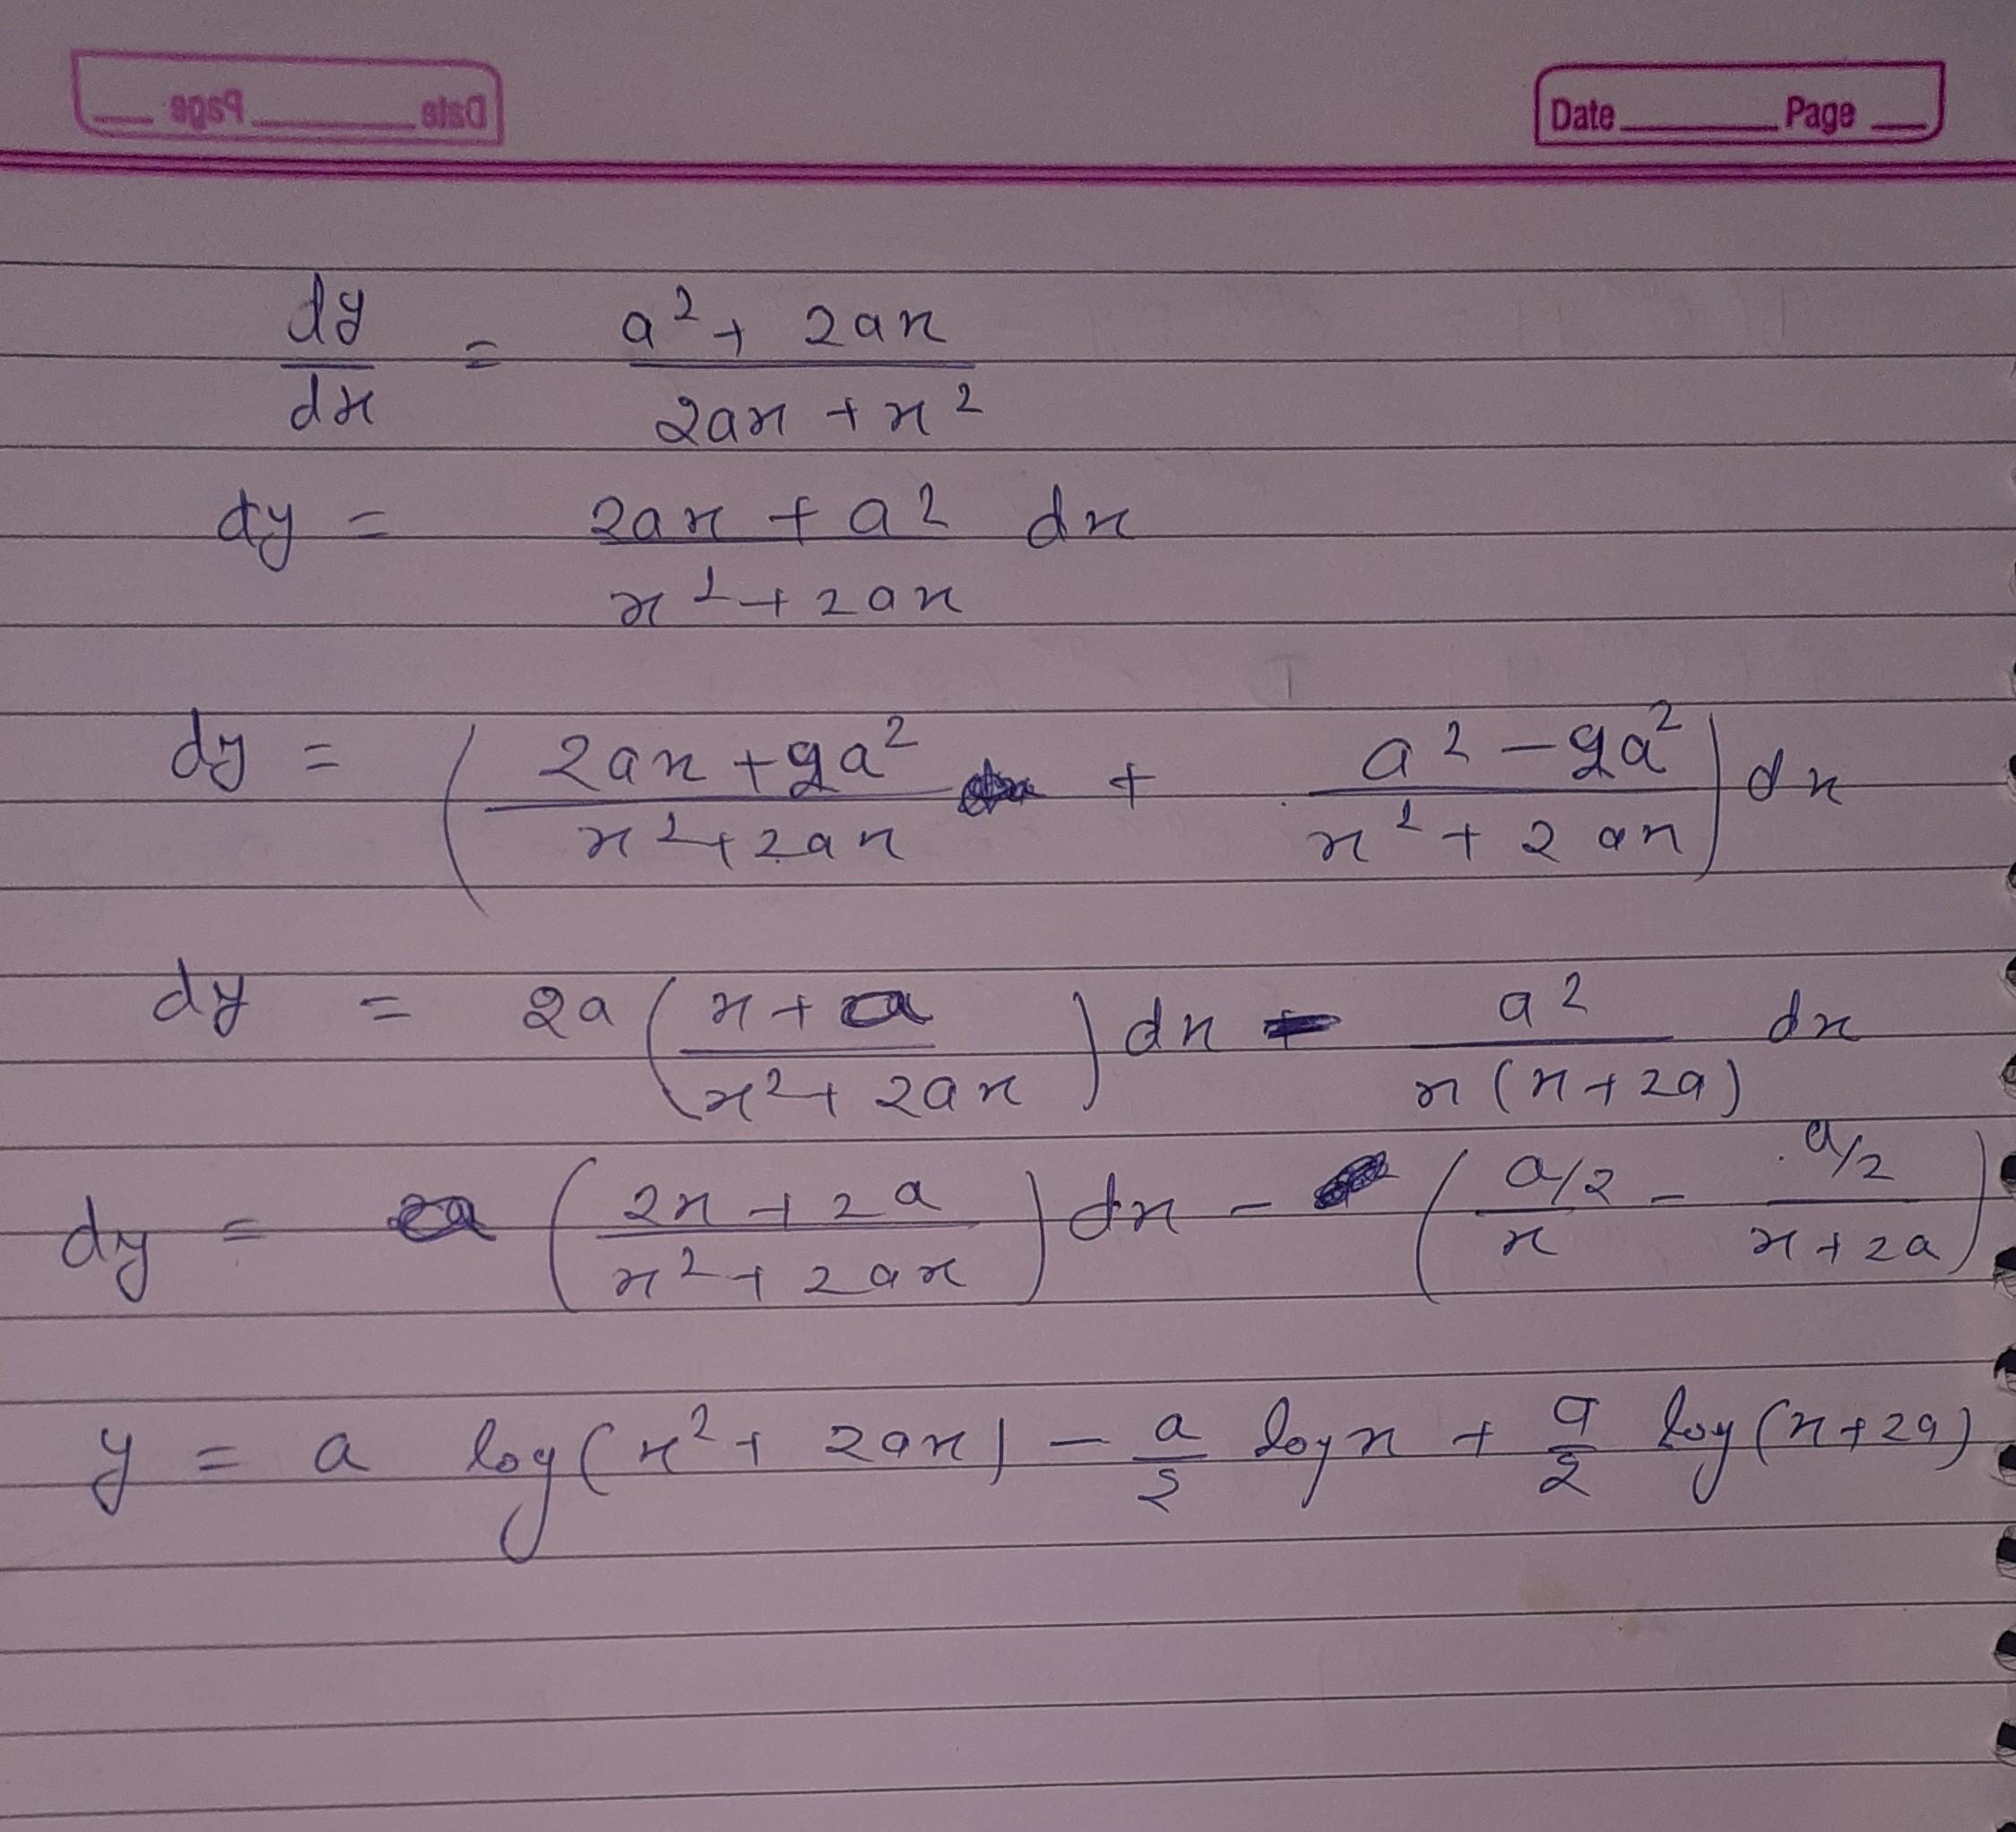 Date Page
Date Page
dy/dx = (a² + 2ax)/(2ax + x²)
dy = (2ax + a²)/(x² + 2ax) dx
dy = ((2ax + 2a²)/(x² + 2ax) + (a² - 2a²)/(x² + 2ax)) dx
dy = 2a ((x + a)/(x² + 2ax)) dx - a²/(x(x + 2a)) dx
dy = a ((2x + 2a)/(x² + 2ax)) dx - ((a/2)/x - (a/2)/(x + 2a))
y = a log(x² + 2ax) - a/2 log x + a/2 log(x + 2a)